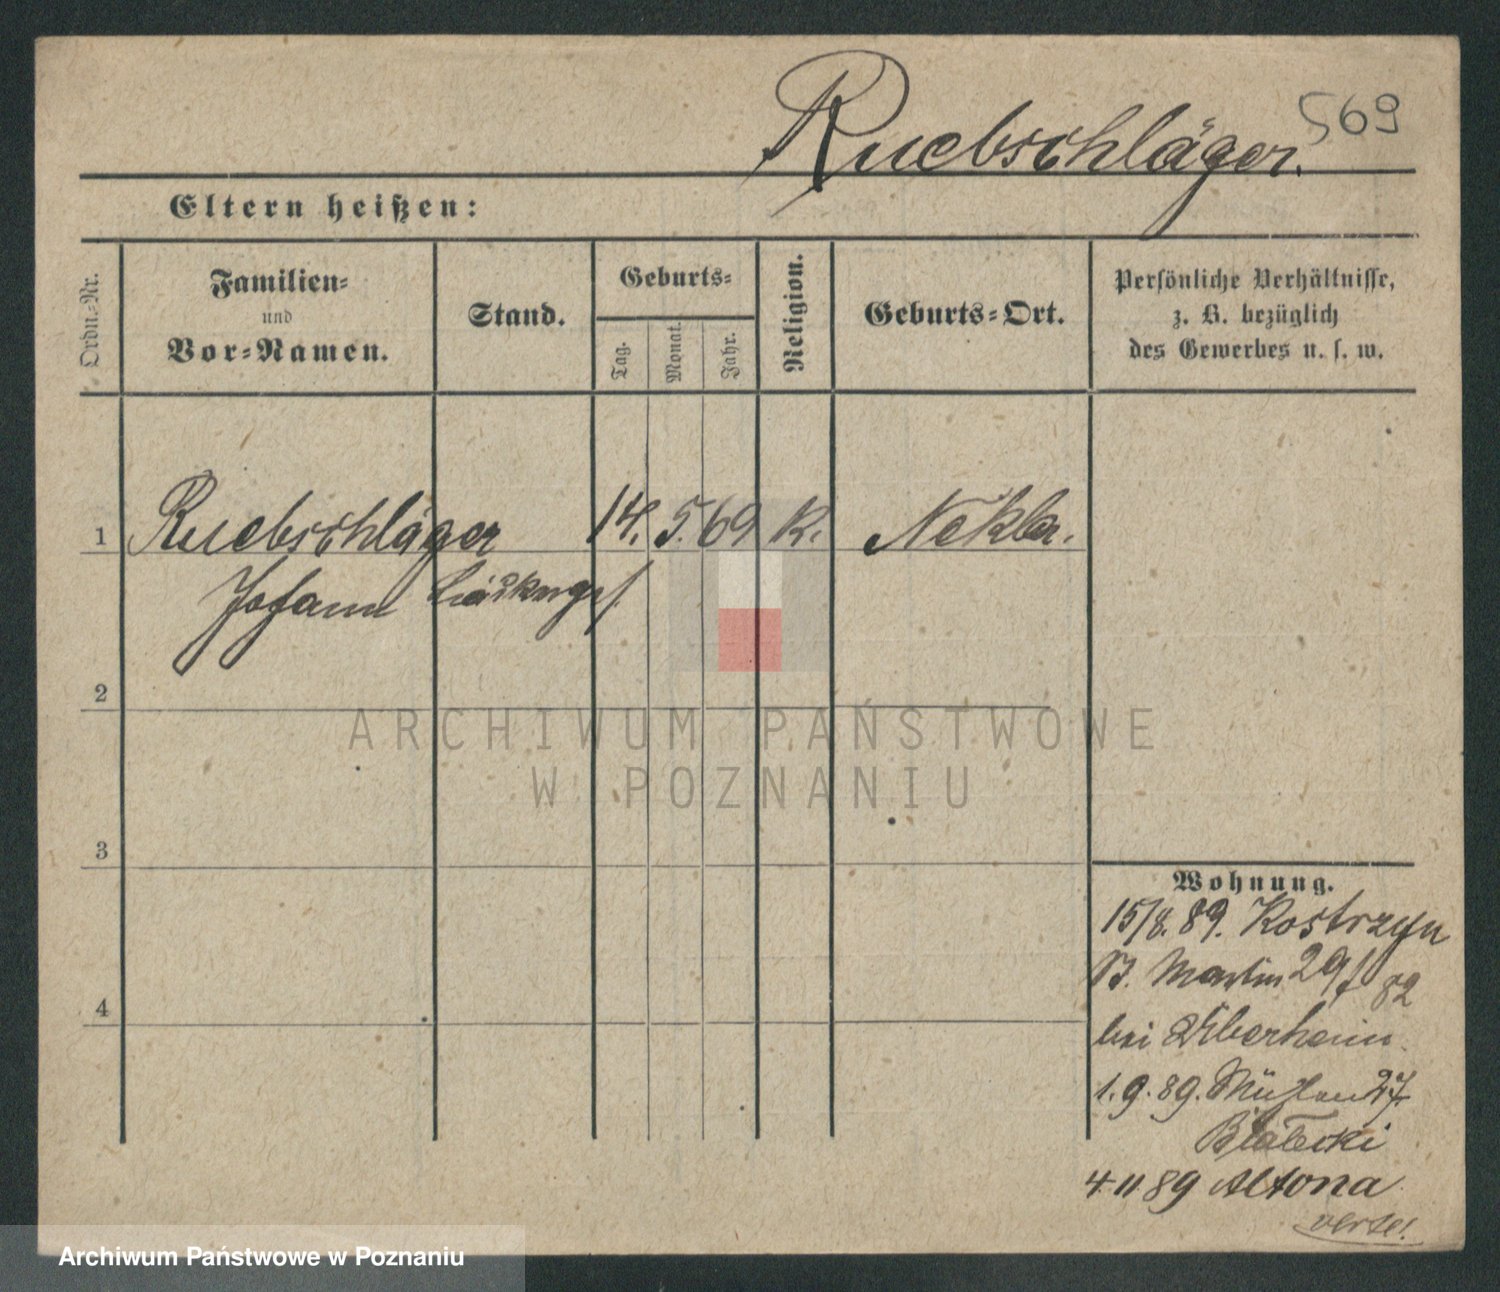 569
Ruebschläger.
Eltern heißen:
Ordn.-Nr.
Familien-
und
Vor-Namen.
Stand.
Geburts-
Tag.
Monat.
Jahr.
Religion.
Geburts-Ort.
Persönliche Verhältnisse,
z. B. bezüglich
des Gewerbes u. s. w.
1 Ruebschläger 14. 5. 69 k. Nekla.
Johann
2
3
4
Wohnung.
15/8. 89. Kostrzyn
St. Martin 29/82
bei
1. 9. 89. Mühlen 27
4 11 89 Altona
verte!
ARCHIWUM PAŃSTWOWE
W POZNANIU
Archiwum Państwowe w Poznaniu